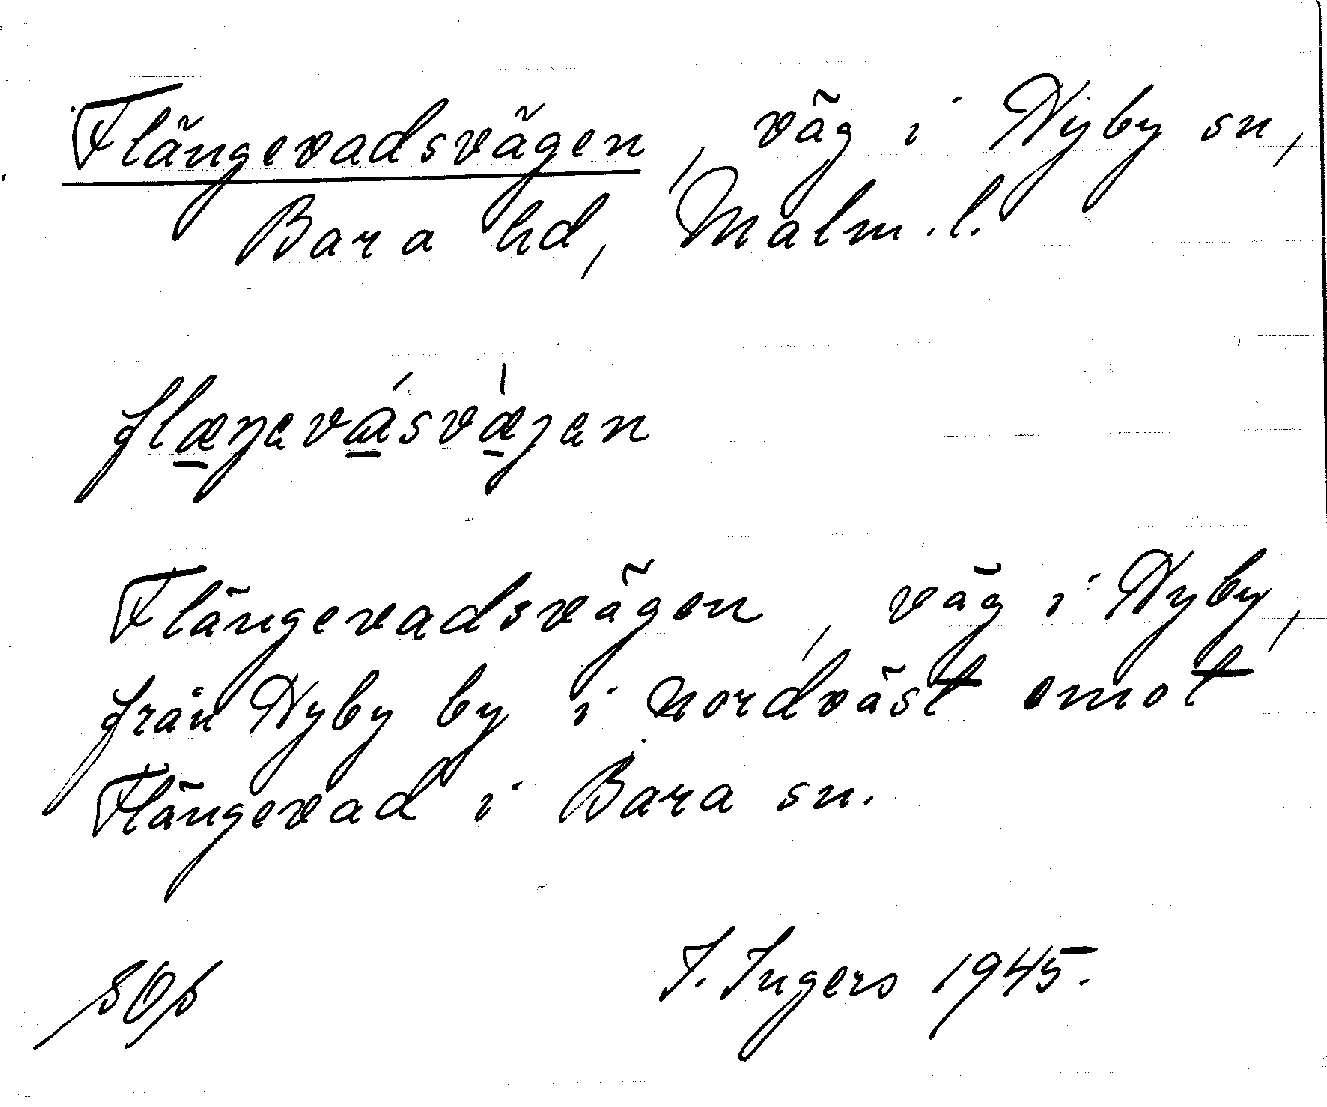 Flängevadsvägen, väg i Hyby sn,
Bara hd, Malm. l.
Flängevadsvägen, väg i Hyby,
från Hyby by i nordväst emot
Flängevad i Bara sn.
I. Ingers 1945.